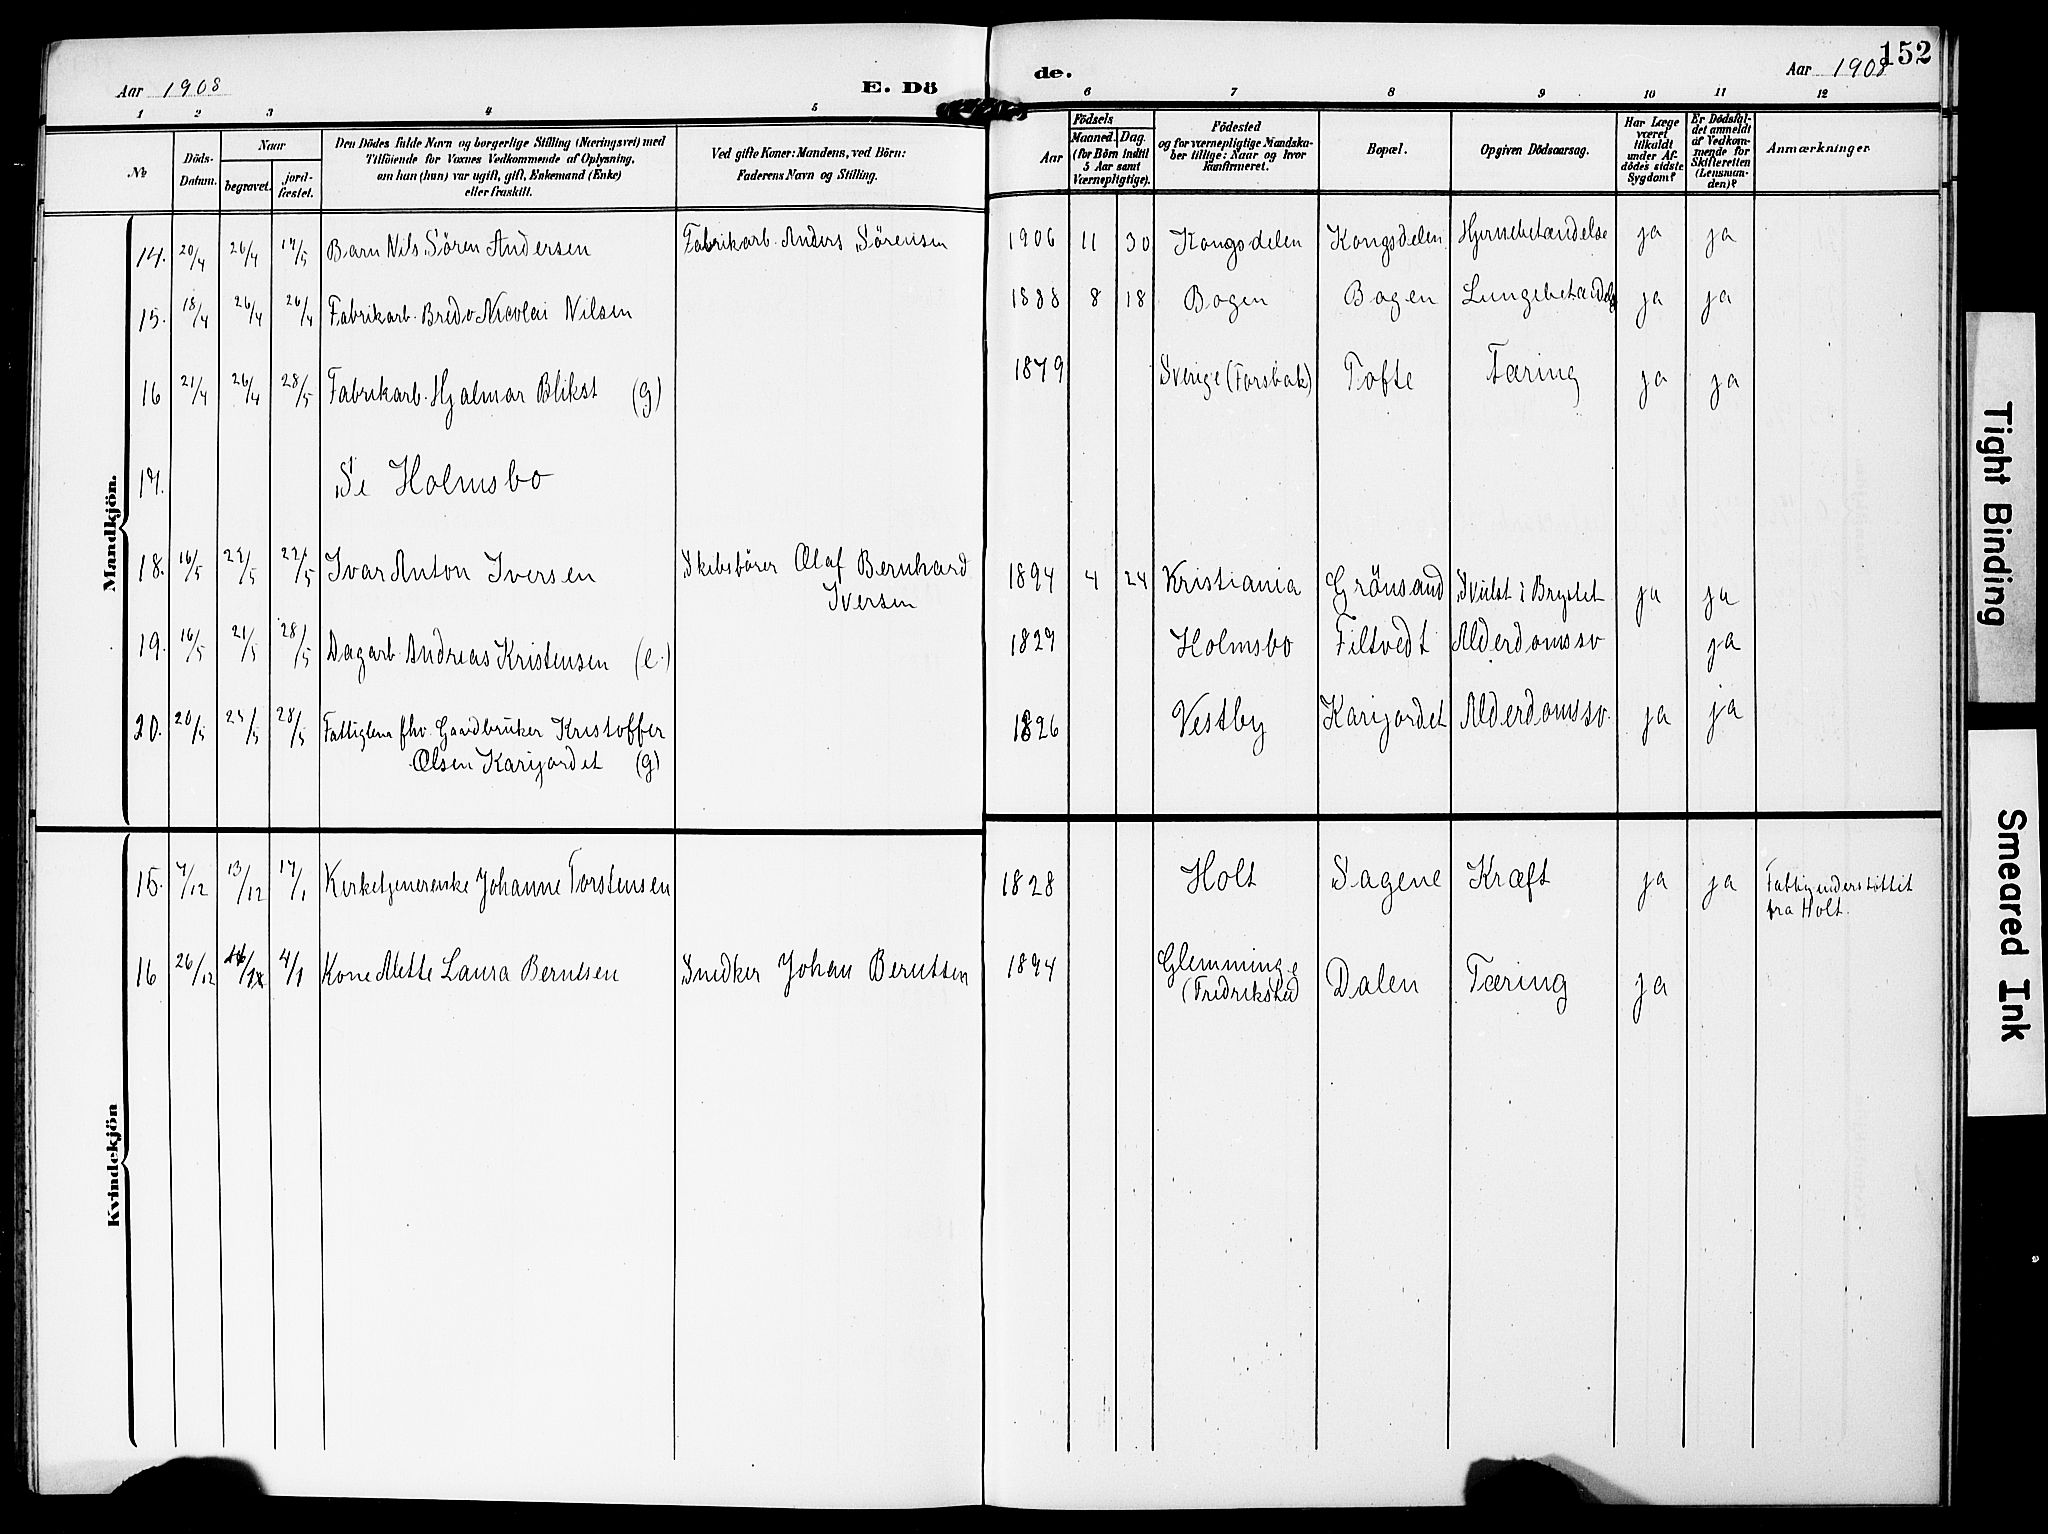 Aar 1908
E. Dö
de.
Aar 1908
152
1 2 3 4 5 6 7 8 9 10 11 12
No
Döds-Datum.
Naar
begravet.
jord-fæstet.
Den Dödes fulde Navn og borgerlige Stilling (Næringsvei) med
Tilföiende for Voxnes Vedkommende af Oplysning,
om han (hun) var ugift, gift, Enkemand (Enke)
eller fraskilt.
Ved gifte Koner: Mandens, ved Börn:
Faderens Navn og Stilling.
Födsels
Aar
Maaned. Dag.
(for Börn indtil
5 Aar samt
Værnepligtige).
Födested
og for værnepligtige Mandska-
ber tillige: Naar og hvor
konfirmeret.
Bopæl.
Opgiven Dödsaarsag.
Har Læge
været
tilkaldt
under Af-
dödes sidste
Sygdom?
Er Dödsfal-
det anmeldt
af Vedkom-
mende for
Skifteretten
(Lensman-
den)?
Anmærkninger.
Mandkjön.
14. 20/4 26/4 17/5 Barn Nils Sören Andersen Fabrikarb. Anders Sörensen 1906 11 30 Kongsdelen Kongsdelen Hjernebetændelse ja ja
15. 18/4 26/4 26/4 Fabrikarb. Bredo Nicolai Nilsen 1888 8 18 Bogen Bogen Lungebetændelse ja ja
16 21/4 26/4 28/5 Fabrikarb. Hjalmar Blikst (g) 1879 Sverige (Forsbak) Tofte Tæring ja ja
17. Se Holmsbo
18. 16/5 22/5 22/5 Ivar Anton Iversen Skibsförer Olaf Bernhard
Iversen 1894 4 24 Kristiania Grönsand Svulst i Brystet ja ja
19. 16/5 21/5 28/5 Dagarb. Andreas Kristensen (e.) 1829 Holmsbo Filtvedt Alderdomssv ja
20. 20/5 25/5 28/5 Fattiglem fhv. Gaardbruker Kristoffer
Olsen Karijordet (g) 1826 Vestby Karijordet Alderdomssv. ja ja
Kvindekjön
15. 7/12 13/12 17/1 Kirketjenerenke Johanne Torstensen 1828 Holt Sagene Kræft ja ja Fattigunderstöttet
fra Holt.
16 26/12 4/1 Kone Mette Laura Berntsen Snedker Johan Berntsen 1874 Glemminge
(Fredrikstad Dalen Tæring ja
Tight Binding
Smeared Ink